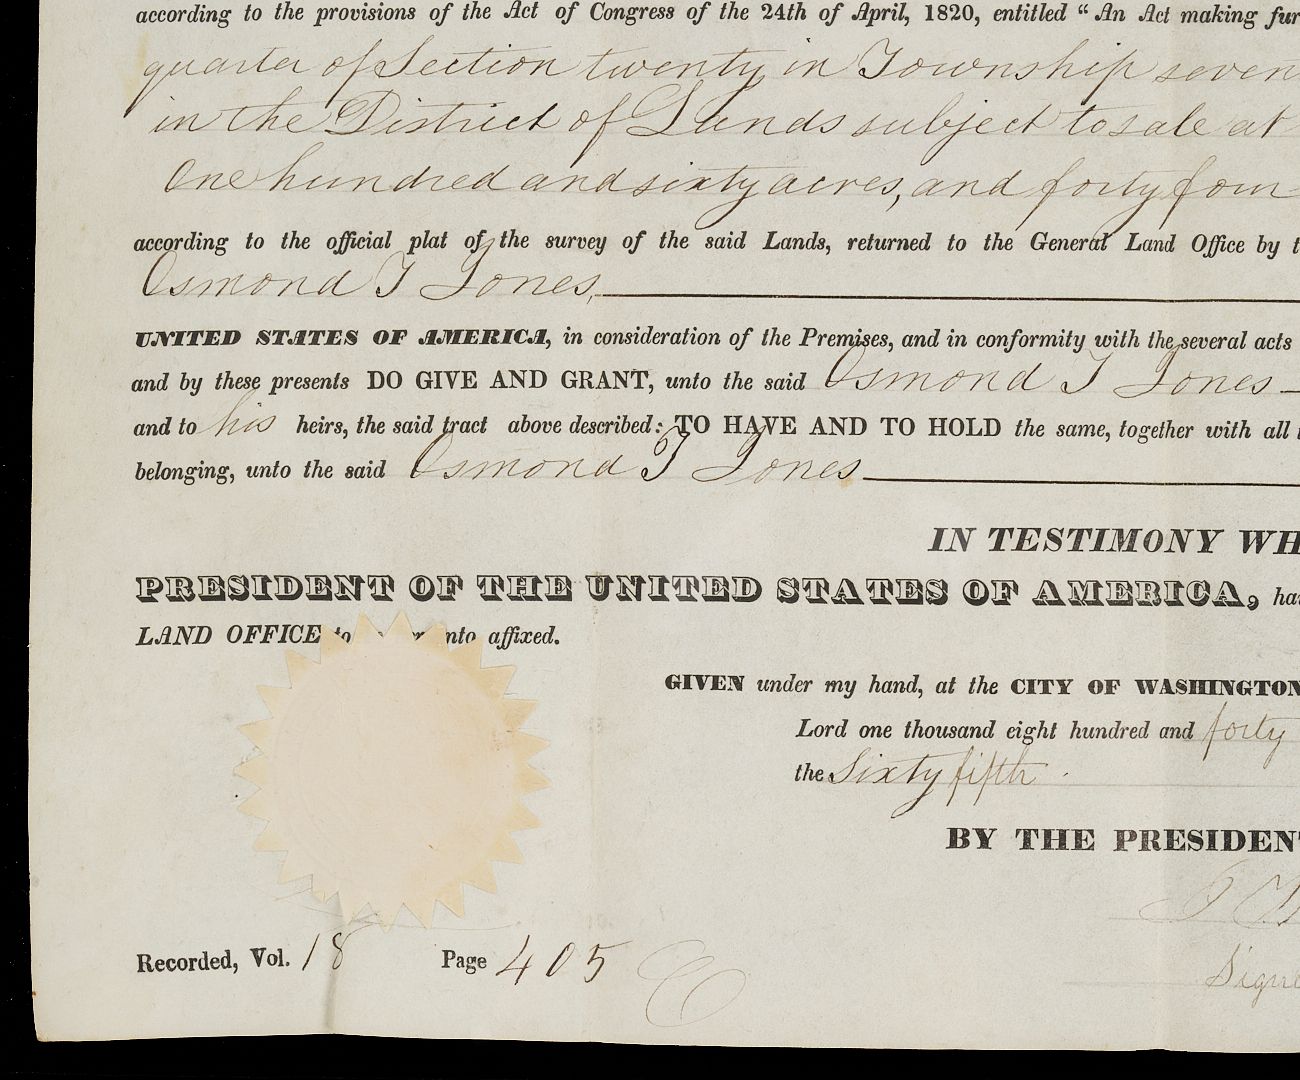 according to the provisions of the Act of Congress of the 24th of April, 1820, entitled “An Act making fur
quarter of Section twenty in Township seven
in the District of Lands subject to sale at
One hundred and sixty acres, and forty four
according to the official plat of the survey of the said Lands, returned to the General Land Office by t
Osmond T Jones,
UNITED STATES OF AMERICA, in consideration of the Premises, and in conformity with the several acts
and by these presents DO GIVE AND GRANT, unto the said Osmond T Jones
and to his heirs, the said tract above described: TO HAVE AND TO HOLD the same, together with all t
belonging, unto the said Osmond T Jones
IN TESTIMONY WH
PRESIDENT OF THE UNITED STATES OF AMERICA, ha
LAND OFFICE to affixed.
GIVEN under my hand, at the CITY OF WASHINGTON
Lord one thousand eight hundred and forty
the Sixty fifth
BY THE PRESIDENT
Signe
Recorded, Vol. 18 Page 405